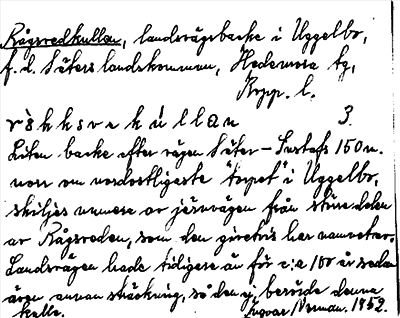 Rågsvedkullan, landsvägsbacke i Uggelbo,
f. d. Säters landskommun, Hedemora tg,
Kopp. l.
3.
Liten backe efter vägen Säter – Gustafs 150 m.
norr om nordostligaste "torpet" i Uggelbo,
skiljes numera av järnvägen från större delen
av Rågsveden, som den givetvis har namnet av.
Landsvägen hade tidigare än för c:a 100 år sedan
även annan sträckning, så den ej berörde denna
kulle. Ingvar Norman. 1952.